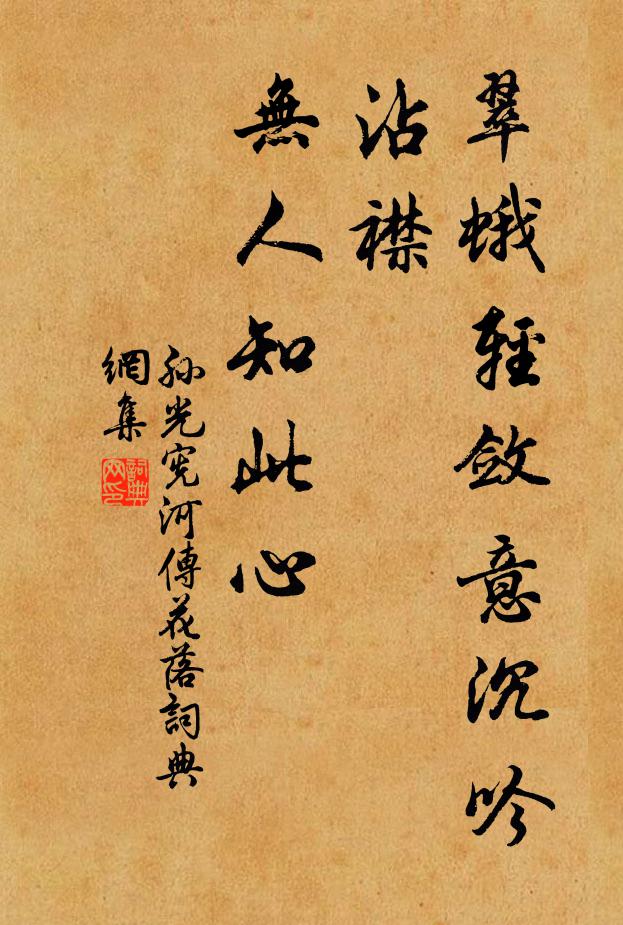 翠蛾輕斂意沉吟
沾襟
無人知此心
孫光憲河傳花落詞典
網集
詞典網印